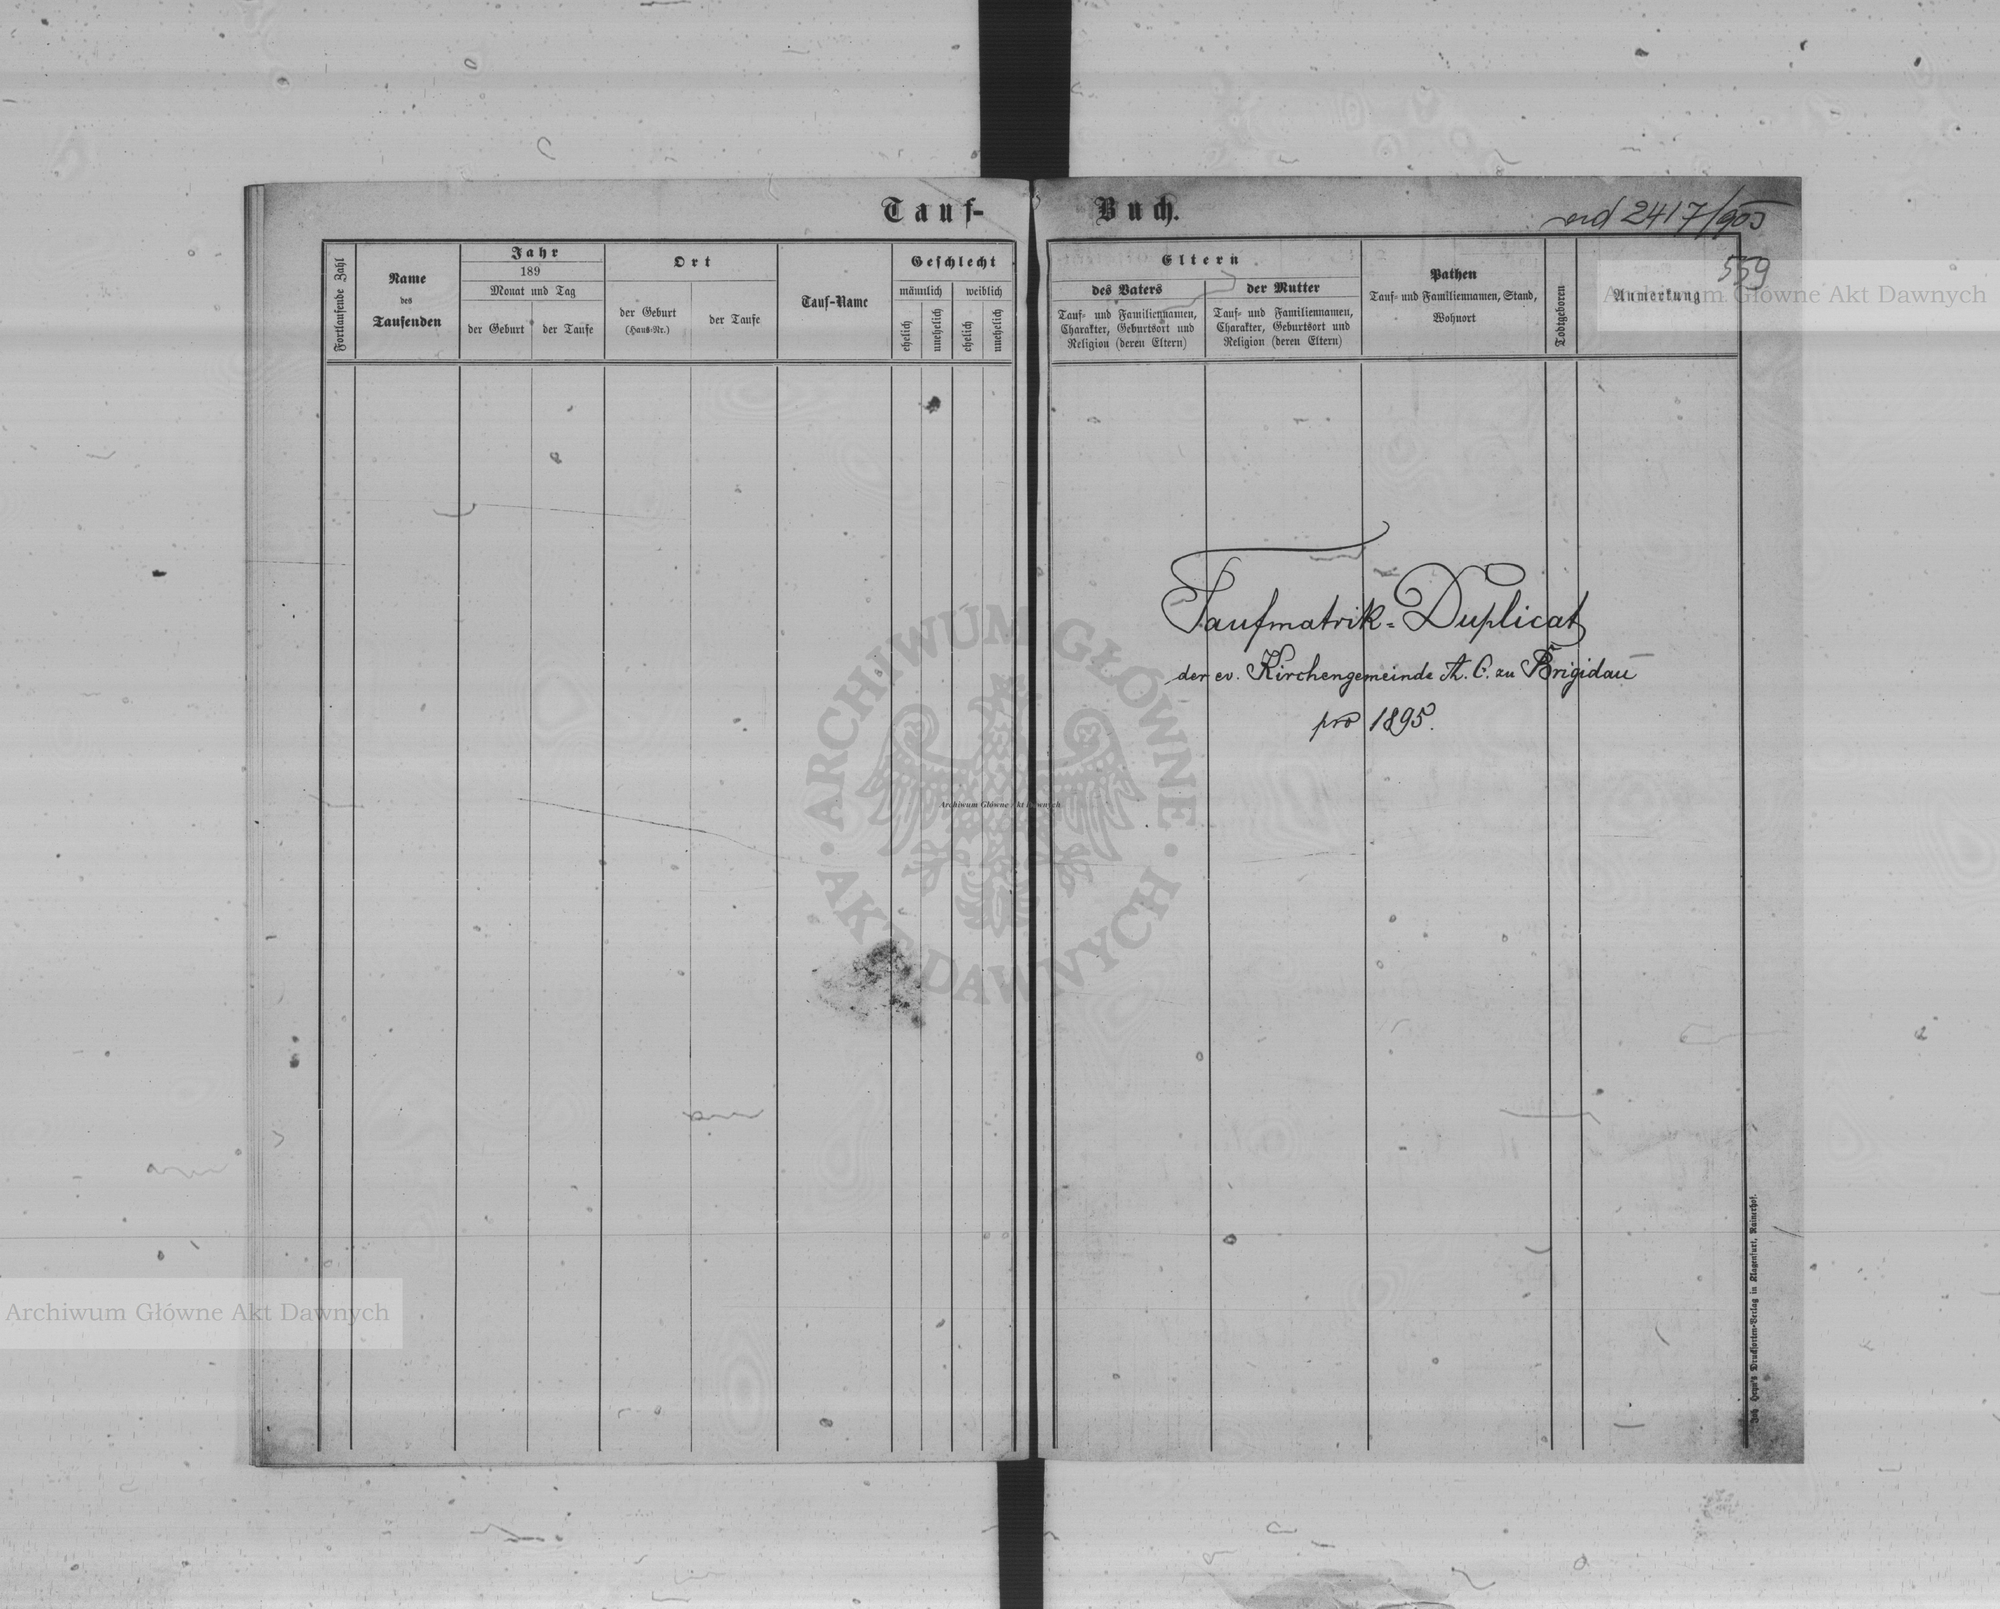 Tauf-Buch.
ad 2417/905
559
Fortlaufende Zahl
Name
des
Taufenden
Jahr
189
Monat und Tag
der Geburt
der Taufe
Ort
der Geburt
(Haus-Nr.)
der Taufe
Tauf-Name
Geschlecht
männlich
weiblich
ehelich
unehelich
ehelich
unehelich
Eltern
des Vaters
Tauf- und Familiennamen,
Charakter, Geburtsort und
Religion (deren Eltern)
der Mutter
Tauf- und Familiennamen,
Charakter, Geburtsort und
Religion (deren Eltern)
Pathen
Tauf- und Familiennamen, Stand,
Wohnort
Todtgeboren
Anmerkung
Archiwum Główne Akt Dawnych
Taufmatrik-Duplicat
der ev. Kirchengemeinde A. C. zu Brigidau
pro 1895.
ARCHIWUM GŁÓWNE AKT DAWNYCH
Archiwum Główne Akt Dawnych
Archiwum Główne Akt Dawnych
Joh. Heyn's Drucksorten-Verlag in Klagenfurt, Rainerhof.